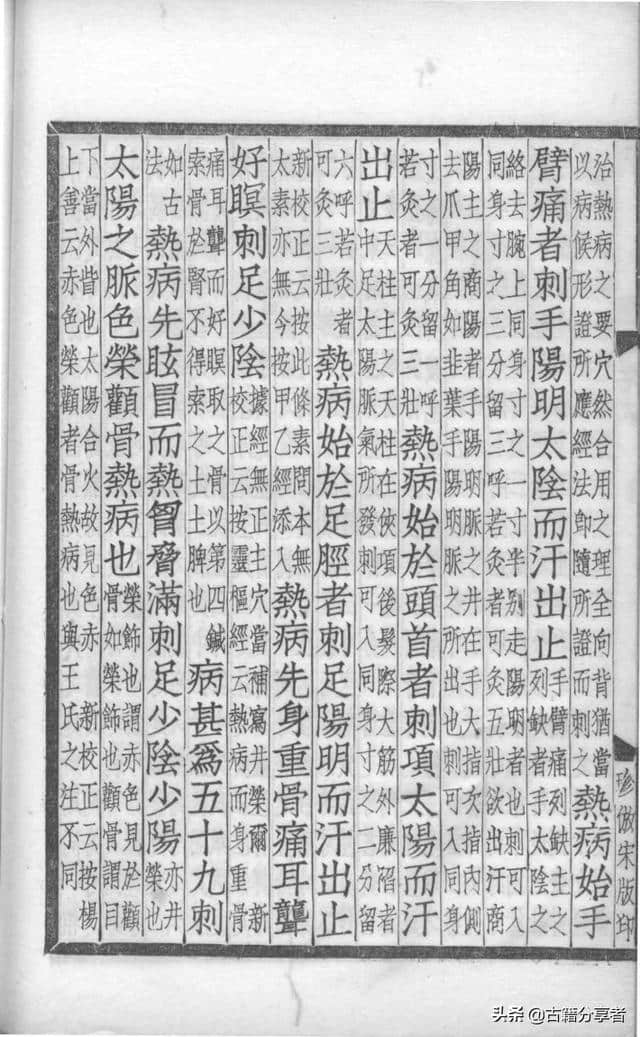 治熱病之要穴然合用之理全向背猶當
以病候形證所應經法即隨所證而刺之
熱病始手
臂痛者刺手陽明太陰而汗出止
手臂痛列缺主之
列缺者手太陰之
絡去腕上同身寸之一寸半別走陽明者也刺可入
同身寸之三分留三呼若灸者可灸五壯欲出汗商
陽主之商陽者手陽明脈之井在手大指次指內側
去爪甲角如韭葉手陽明脈之所出也刺可入同身
寸之一分留一呼
若灸者可灸三壯
熱病始於頭首者刺項太陽而汗
出止
天柱主之天柱在俠項後髮際大筋外廉陷者
中足太陽脈氣所發刺可入同身寸之二分留
六呼若灸者
可灸三壯
熱病始於足脛者刺足陽明而汗出止
新校正云按此條素問本無
太素亦無今按甲乙經添入
熱病先身重骨痛耳聾
好瞑刺足少陰
據經無正主穴當補寫井滎爾 新
校正云按靈樞經云熱病而身重骨
痛耳聾而好瞑取之骨以第四鍼
索骨於腎不得索之土土脾也
病甚爲五十九刺
如古
法
熱病先眩冒而熱胷脅滿刺足少陰少陽
亦井
滎也
太陽之脈色榮顴骨熱病也
榮飾也謂赤色見於顴
骨如榮飾也顴骨謂目
下當外眥也太陽合火故見色赤 新校正云按楊
上善云赤色榮顴者骨熱病也與王氏之注不同
珍倣宋版印
头条 @古籍分享者